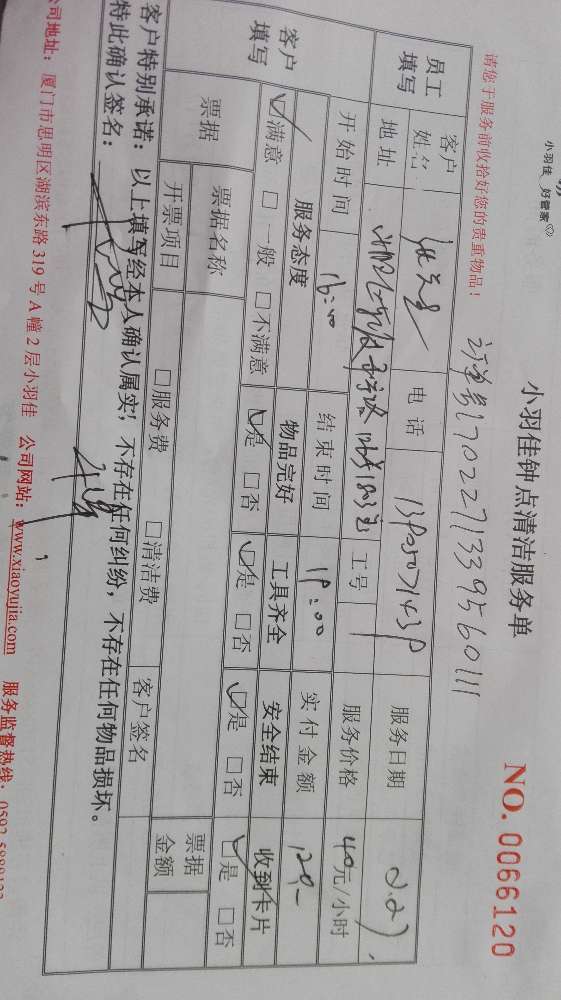 小羽佳 好管家
小羽佳钟点清洁服务单
NO. 0066120
1702271339560111
请您于服务前收拾好您的贵重物品！
员工填写 客户姓名 电话 服务日期 2.27
地址 工号 服务价格 40元/小时
客户填写 开始时间 16:00 结束时间 19:00 实付金额 120.-
服务态度 物品完好 工具齐全 安全结束 收到卡片
☑满意 □一般 □不满意 ☑是 □否 ☑是 □否 ☑是 □否 ☑是 □否
票据 票据名称 票据金额
开票项目 □服务费 □清洁费 客户签名
客户特别承诺：以上填写经本人确认属实，不存在任何纠纷，不存在任何物品损坏。
特此确认签名：
公司地址：厦门市思明区湖滨东路 319 号 A 幢 2 层小羽佳 公司网站：www.xiaoyujia.com 服务监督热线：0592